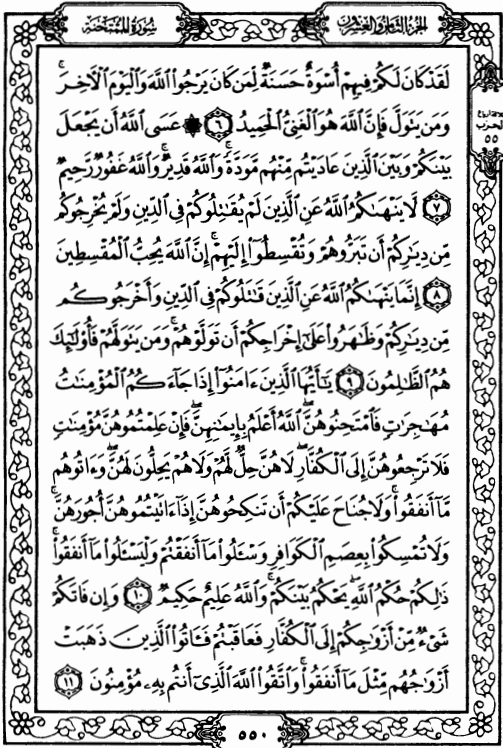 سُورَةُ المُمْتَحنَة
الجُزءُ الثَّامِنُ وَالعِشْرُون
لَقَدْ كَانَ لَكُمْ فِيهِمْ أُسْوَةٌ حَسَنَةٌ لِّمَن كَانَ يَرْجُوا۟ ٱللَّهَ وَٱلْيَوْمَ ٱلْءَاخِرَ ۚ
وَمَن يَتَوَلَّ فَإِنَّ ٱللَّهَ هُوَ ٱلْغَنِىُّ ٱلْحَمِيدُ ٦ ۞ عَسَى ٱللَّهُ أَن يَجْعَلَ
بَيْنَكُمْ وَبَيْنَ ٱلَّذِينَ عَادَيْتُم مِّنْهُم مَّوَدَّةً ۚ وَٱللَّهُ قَدِيرٌ ۚ وَٱللَّهُ غَفُورٌ رَّحِيمٌ
٧ لَّا يَنْهَىٰكُمُ ٱللَّهُ عَنِ ٱلَّذِينَ لَمْ يُقَـٰتِلُوكُمْ فِى ٱلدِّينِ وَلَمْ يُخْرِجُوكُم
مِّن دِيَـٰرِكُمْ أَن تَبَرُّوهُمْ وَتُقْسِطُوٓا۟ إِلَيْهِمْ ۚ إِنَّ ٱللَّهَ يُحِبُّ ٱلْمُقْسِطِينَ
٨ إِنَّمَا يَنْهَىٰكُمُ ٱللَّهُ عَنِ ٱلَّذِينَ قَـٰتَلُوكُمْ فِى ٱلدِّينِ وَأَخْرَجُوكُم
مِّن دِيَـٰرِكُمْ وَظَـٰهَرُوا۟ عَلَىٰٓ إِخْرَاجِكُمْ أَن تَوَلَّوْهُمْ ۚ وَمَن يَتَوَلَّهُمْ فَأُو۟لَـٰٓئِكَ
هُمُ ٱلظَّـٰلِمُونَ ٩ يَـٰٓأَيُّهَا ٱلَّذِينَ ءَامَنُوٓا۟ إِذَا جَآءَكُمُ ٱلْمُؤْمِنَـٰتُ
مُهَـٰجِرَٰتٍ فَٱمْتَحِنُوهُنَّ ۖ ٱللَّهُ أَعْلَمُ بِإِيمَـٰنِهِنَّ ۖ فَإِنْ عَلِمْتُمُوهُنَّ مُؤْمِنَـٰتٍ
فَلَا تَرْجِعُوهُنَّ إِلَى ٱلْكُفَّارِ ۖ لَا هُنَّ حِلٌّ لَّهُمْ وَلَا هُمْ يَحِلُّونَ لَهُنَّ ۖ وَءَاتُوهُم
مَّآ أَنفَقُوا۟ ۚ وَلَا جُنَاحَ عَلَيْكُمْ أَن تَنكِحُوهُنَّ إِذَآ ءَاتَيْتُمُوهُنَّ أُجُورَهُنَّ ۚ
وَلَا تُمْسِكُوا۟ بِعِصَمِ ٱلْكَوَافِرِ وَسْـَٔلُوا۟ مَآ أَنفَقْتُمْ وَلْيَسْـَٔلُوا۟ مَآ أَنفَقُوا۟ ۚ
ذَٰلِكُمْ حُكْمُ ٱللَّهِ ۖ يَحْكُمُ بَيْنَكُمْ ۚ وَٱللَّهُ عَلِيمٌ حَكِيمٌ ١٠ وَإِن فَاتَكُمْ
شَىْءٌ مِّنْ أَزْوَٰجِكُمْ إِلَى ٱلْكُفَّارِ فَعَاقَبْتُمْ فَـَٔاتُوا۟ ٱلَّذِينَ ذَهَبَتْ
أَزْوَٰجُهُم مِّثْلَ مَآ أَنفَقُوا۟ ۚ وَٱتَّقُوا۟ ٱللَّهَ ٱلَّذِىٓ أَنتُم بِهِۦ مُؤْمِنُونَ ١١
الحزب
٥٥
٥٥٠